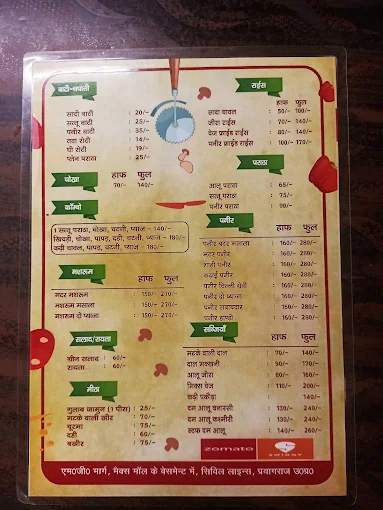 बाटी-चपाती
सादी बाटी : 20/-
सत्तू बाटी : 25/-
पनीर बाटी : 35/-
तवा रोटी : 14/-
घी रोटी : 19/-
प्लेन पराठा : 25/-
चोखा हाफ फुल
70/- 140/-
कॉम्बो
1 सत्तू पराठा, चोखा, चटनी, प्याज - 140/-
खिचड़ी, चोखा, पापड़, दही, चटनी, प्याज - 180/-
कढ़ी चावल, पापड़, चटनी, प्याज - 180/-
मशरूम
हाफ फुल
मटर मशरूम : 150/- 270/-
मशरूम मसाला : 150/- 270/-
मशरूम दो प्याजा : 150/- 270/-
सलाद/रायता
ग्रीन सलाद : 60/-
रायता : 60/-
मीठा
गुलाब जामुन (1 पीस) : 25/-
मटके वाली खीर : 70/-
चूरमा : 75/-
दही : 60/-
बखीर : 75/-
राईस
हाफ फुल
सादा चावल : 50/- 100/-
जीरा राईस : 70/- 140/-
वेज फ्राईड राईस : 80/- 140/-
पनीर फ्राईड राईस : 100/- 170/-
पराठा
आलू पराठा : 65/-
सत्तू पराठा : 75/-
पनीर पराठा : 90/-
पनीर
हाफ फुल
पनीर बटर मसाला : 160/- 280/-
मटर पनीर : 160/- 280/-
शाही पनीर : 160/- 280/-
कढ़ाई पनीर : 160/- 280/-
पनीर चिल्ली ग्रेवी : 160/- 280/-
पनीर दो प्याजा : 160/- 280/-
पनीर लवाबदार : 160/- 280/-
पनीर हाण्डी : 160/- 280/-
सब्जियाँ
हाफ फुल
मटके वाली दाल : 70/- 140/-
दाल मक्खनी : 90/- 170/-
आलू जीरा : 80/- 160/-
मिक्स वेज : 110/- 200/-
कढ़ी पकौड़ा : 140/-
दम आलू बनारसी : 130/- 240/-
दम आलू कश्मीरी : 130/- 240/-
स्टफ दम आलू : 140/- 260/-
zomato SWIGGY
एम०जी० मार्ग, मैक्स मॉल के बेसमेन्ट में, सिविल लाइन्स, प्रयागराज उ०प्र०